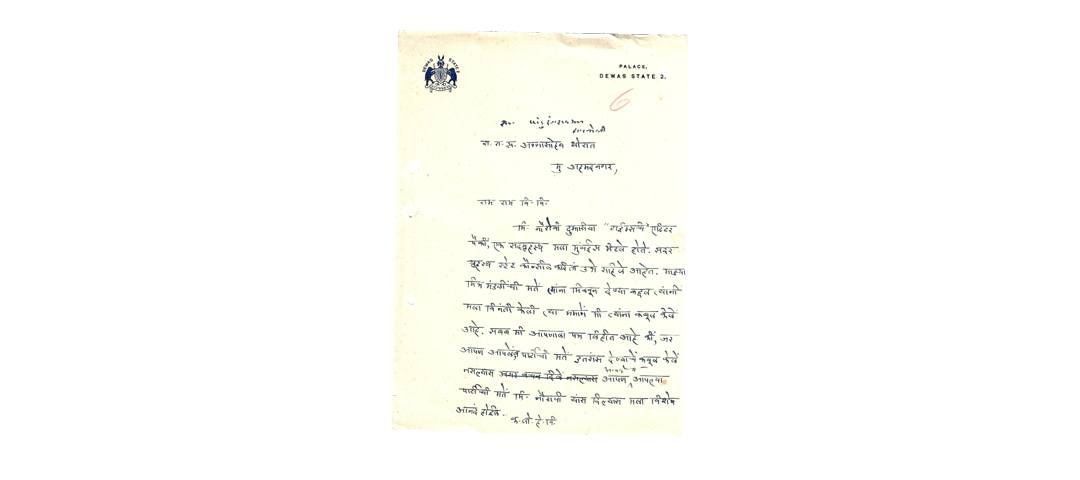 DEWAS STATE 2
PALACE,
DEWAS STATE 2.
6
रा. रा. स. अण्णासाहेब थोरात
मु अहमदनगर,
राम राम वि. वि.
मि. नौरोजी दुमासीया "टाईम्सचे" एडिटर
पैकीं, एक सद्गृहस्थ मला मुंबईस भेटले होते. सदर
गृहस्थ स्टेट कौन्सील करितां उभे राहिले आहेत. माझ्या
मित्र मंडळींची मतें त्यांना मिळवून देण्या बद्दल त्यांनी
मला विनंती केली त्या प्रमाणें मी त्यांना कबूल केले
आहे. सबब मी आपणाला पत्र लिहीत आहे कीं, जर
आपण आपलेी पार्टीची मतें इतरांस देण्याचें कबूल केलें
नसल्यास वचन दिलें नसल्यास आपण आपल्या
पार्टीची मतें मि. नौरोजी यांस दिल्यास मला विशेष
आनंद होईल.
क. लो. हे. वि.